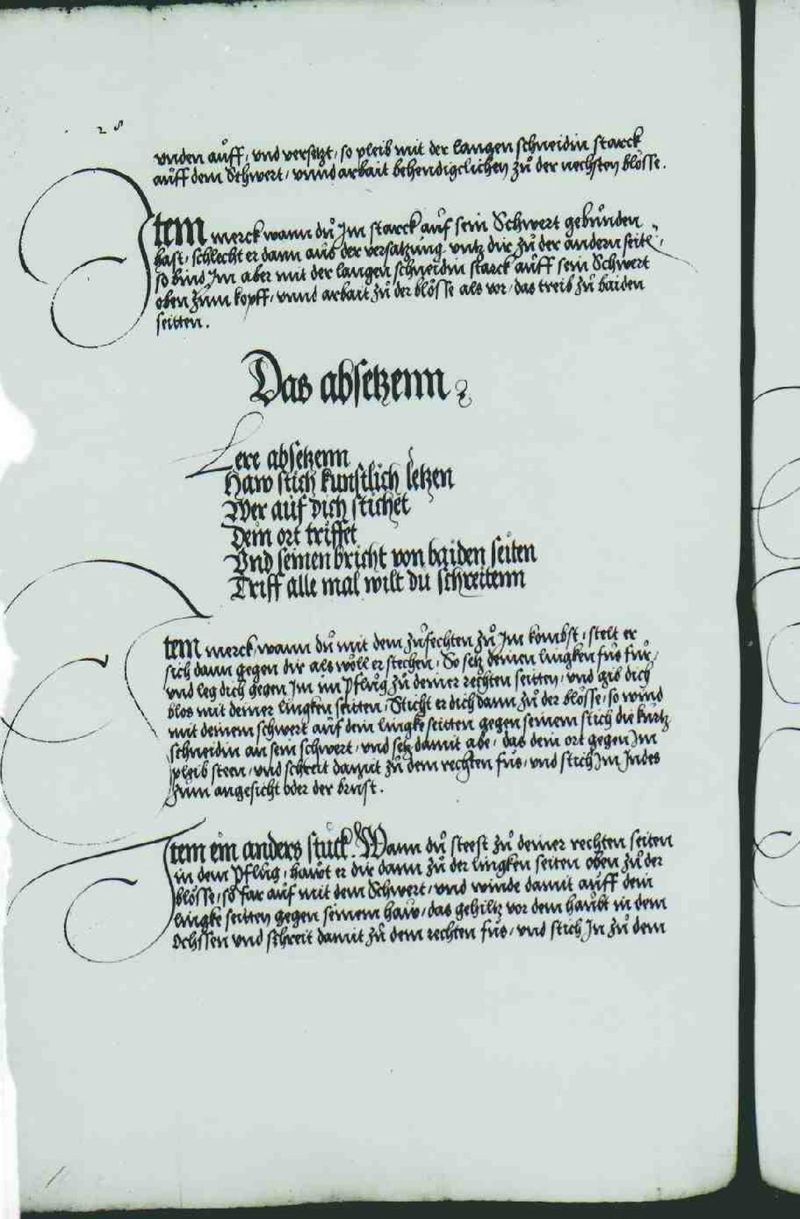 28
vnden auff / vnd versetzt / so pleib mit der langen schneidin starck
auff dem Schwert / vnnd arbait behendigclichen zů der nechsten blösse.
Item merck wann dů Im starck auf sein Schwert gebůnden
hast / schlecht er dann aus der versatzung vntz dir zů der andern seitt /
so bind Im aber mit der langen schneidin starck auff sein Schwert
oben zům kopff / vnnd arbait zů der blösse als vor / das treib zů baiden
seitten.
Das absetzenn
Lere absetzenn
Haw stich kunstlich letzen
Wer auf dich stichet
Dein ort triffet
Vnd seinen bricht von baiden seiten
Triff alle mal wilt du schreitenn
Item merck, wann dů mit dem zůfechten zů Im kombst / stelt er
sich dann gegen dir als wöll er stechen / So setz deinen lingken fůs fůr /
vnd leg dich gegen Im im Pflůg zů deiner rechten seitten / vnd gib dich
blos mit deiner lingken seitten / Sticht er dich dann zů der blösse / so wind
mit deinem schwert auf dein lingke seitten gegen seinem stich die kůrtz
schneidin an sein schwert / vnd setz damit abe / das dein ort gegen Im
pleib steen / vnd schreit damit zů dem rechten fůs / vnd stich Im Indes
zům angesicht oder der brust.
Item ein anders stuck. Wann dů steest zů deiner rechten seiten
in dem Pflůg / hawt er dir dann zů der lingken seiten oben zů der
blösse / so far auf mit dem Schwert / vnd winde damit auff dein
lingke seitten gegen seinem haw / das gehiltz vor dem haubt in dem
Ochssen vnd schreit damit zů dem rechten fůs / vnd stich In zů dem